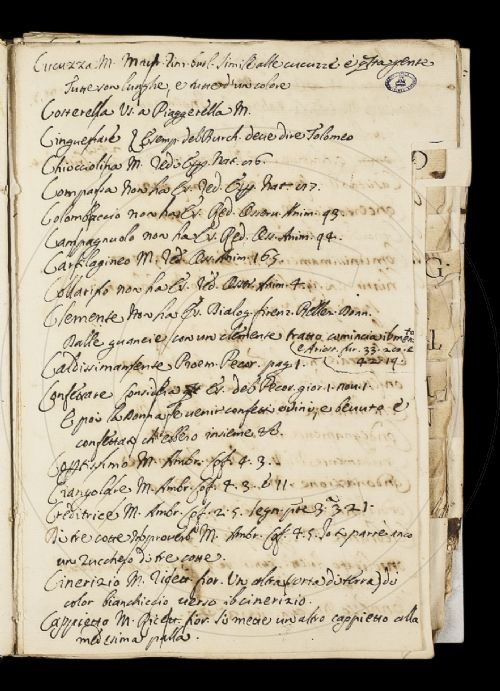 Cucuzza M. Mach. rim. burl. Simile alle cucuzze è questa gente
Tutte son lunghe, e tutte d'un colore
Costerella V. a Piaggerella M.
Cinguettare Esemp. del Burch. decie dire Tolomeo
Chiocciolina M. Red. Esp. Nat. 26.
Comparsa Non ha Es. Red. Esp. Nat. 27.
Colombaccio non ha Es. Red. Osserv. Anim. 93.
Campagnuolo non ha Es. Red. Oss. Anim. 94.
Cartilagineo M. Red. Oss. Anim. 165.
Collarino non ha Es. Red. Oss. Anim. 4.
Clemente Non ha Es. Dialog. firenz. Bellez. Donn.
Dalle guancie con un clemente tratto cominciati mento
e Arios. fur. 33. 20. e
42. 14.
Caldissimamente Proem. Pecor. pag. 1.
Confettare Considera Es. del Pecor. gior. 1. nov. 1.
E poi la Donna fe venir confetti e vini, e bevuto e
confettato ch'ebbero insieme &c.
Cottissimo M. Ambr. Cof. 4. 3.
Ciangolare M. Ambr. Cof. 4. 3. e 11.
Creditrice M. Ambr. Cof. 2. 5. Segn. 3. 3. 21.
Di tre cotte M. Ambr. Cof. 4. 5. Io ti parrei anco
un Zucchero di tre cotte.
Cinerizio M. Ricett. fior. Un altra sorta di terra di
color bianchiccio verso il cinerizio.
Cappietto M. Ricett. fior. Si mette un altro cappietto alla
medesima palla.